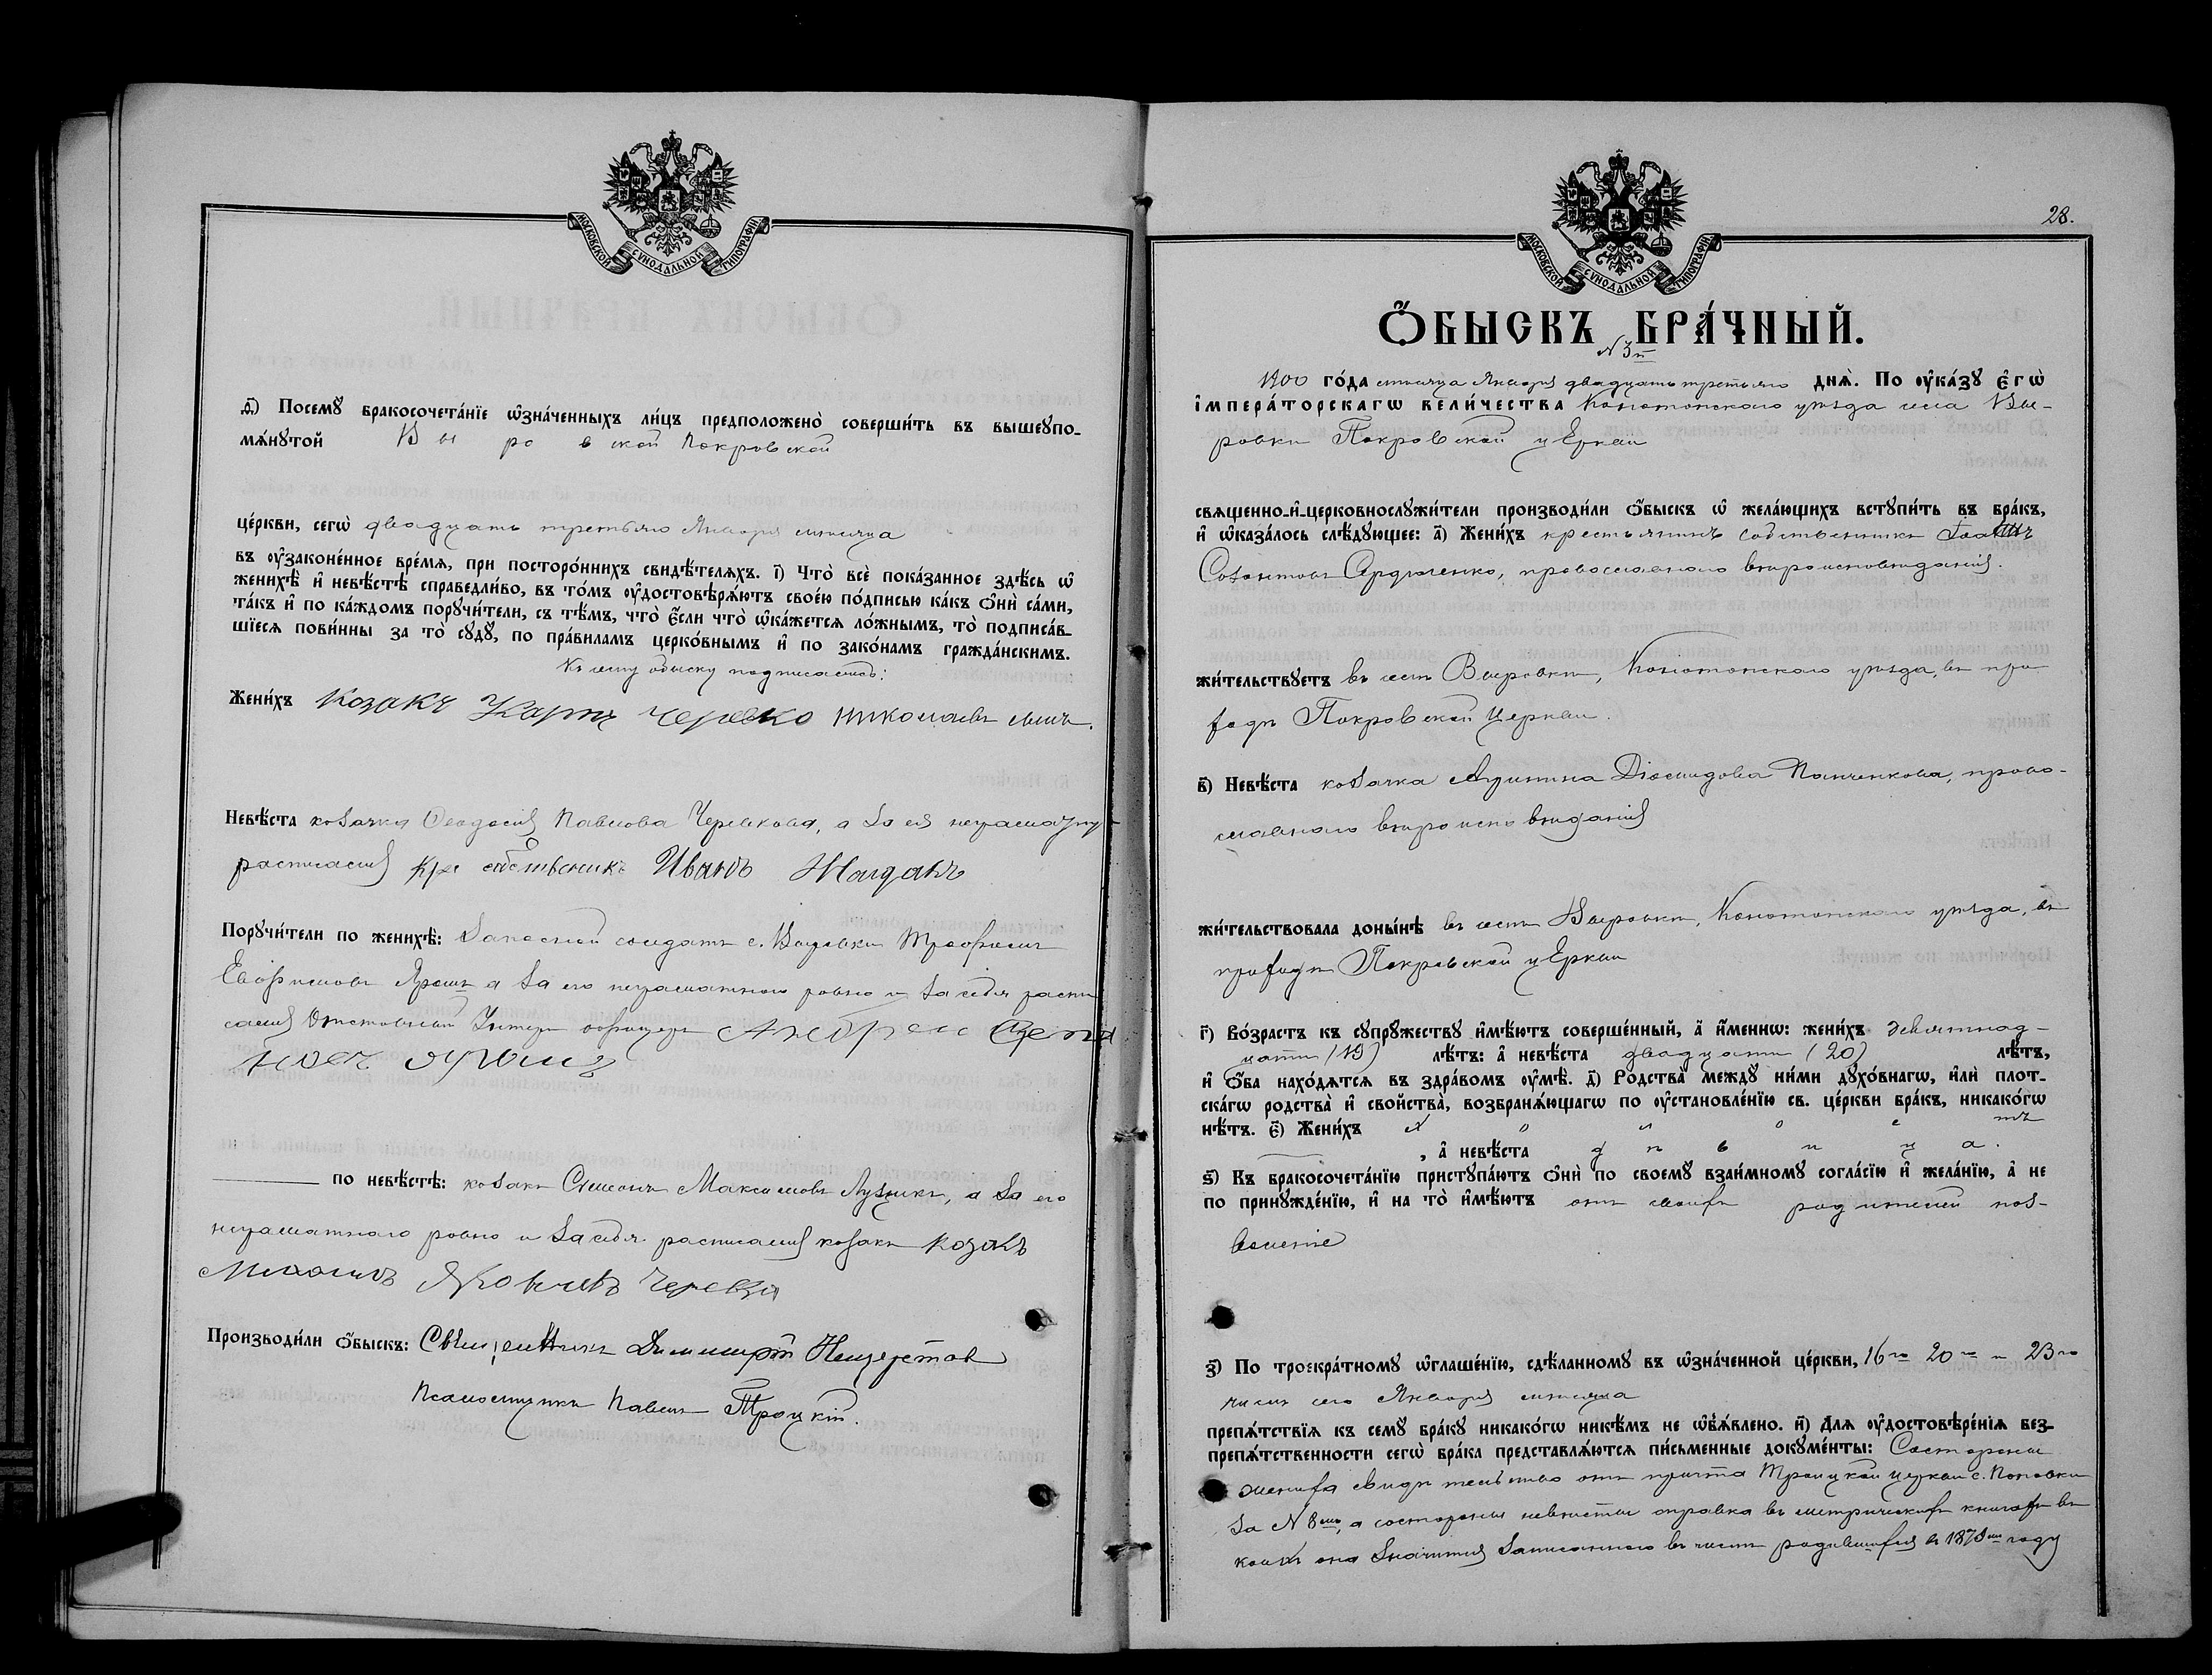 МОСКОВСКОЙ СѴНОДАЛЬНОЙ ТИПОГРАФІИ
д҃і) Посемꙋ бракосочета́нїе ѡ҆зна́ченныхъ ли́цъ предположено̀ соверши́ть въ вышеꙋпо-
мѧ́нꙋтой Выровской Покровской
це́ркви, сегѡ̀ двадцать третьяго Января мѣсяца
въ ᲂу҆законе́нное вре́мѧ, при посторо́ннихъ свидѣ́телѧхъ. і҃) Что̀ всѐ пока́занное здѣ́сь ѡ҆
женихѣ̀ и҆ невѣ́стѣ справедли́во, въ то́мъ ᲂу҆достовѣрѧ́ютъ свое́ю по́дписью ка́къ ѻ҆нѝ са́ми,
та́къ и҆ по ка́ждомъ порꙋчи́тели, съ тѣ́мъ, что̀ є҆́сли что̀ ѡ҆ка́жетсѧ ло́жнымъ, то̀ подписа́в-
шїесѧ пови́нны за то̀ сꙋдꙋ̀, по пра́виламъ церко́внымъ и҆ по зако́намъ гражда́нскимъ.
Къ сему обыску подписались:
Жени́хъ Козакъ Карпъ Черевко Николаевъ сынъ.
Невѣ́ста козачка Ѳеодосія Павлова Черевкова, а за ея неграмотну
росписался Кре собственикъ Иванъ Жагдакъ
Порꙋчи́тели по женихѣ̀: Запасной солдатъ с. Выровки Трофимъ
Евфимовъ Ярошъ а за его неграмотного ровно и за себя распи
сался Отставный Унтеръ офицеръ Андрей
по невѣ́стѣ: козакъ Симеонъ Максимовъ Лузикъ, а за его
неграмотного ровно и за себя расписался козакъ Козакъ
Михаилъ Яковлевъ Черевко
Производи́ли ѻ҆́быскъ: Священникъ Димитрій
Псаломщикъ Павелъ Троцкій.
28.
МОСКОВСКОЙ СѴНОДАЛЬНОЙ ТИПОГРАФІИ
Ѻ҆́БЫСКЪ БРА́ЧНЫЙ.
N 3й
1900 го́да мѣсяца Января двадцать третьяго днѧ̀. По ᲂу҆ка́зꙋ є҆гѡ̀
і҆мпера́торскагѡ вели́чества Конотопского уѣзда села Вы-
ровки Покровской цЕркви
свѧщенно-и҆-церковнослꙋжи́тели производи́ли ѻ҆́быскъ ѡ҆ жела́ющихъ встꙋпи́ть въ бра́къ,
и҆ ѡ҆каза́лось слѣ́дꙋющее: а҃) Жени́хъ крестьянинъ собственникъ Іоаннъ
Созонтовъ Сердюченко, православного вѣроисповѣданія.
жи́тельствꙋетъ въ селѣ Выровки, Конотопского уѣзда, въ при
ходѣ Покровской Церкви.
в҃) Невѣ́ста козачка Акулина Діомидова Панченкова, право-
славного вѣроисповѣданія
жи́тельствовала доны́нѣ въ селѣ Выровки, Конотопского уѣзда, въ
приходѣ Покровской цЕркви
г҃) Во́зрастъ къ сꙋпрꙋ́жествꙋ и҆мѣ́ютъ соверше́нный, а҆ и҆́меннѡ: жени́хъ девятнад-
цати (19) лѣ́тъ: а҆ невѣ́ста двадцати (20) лѣ́тъ,
и҆ ѻ҆́ба нахо́дѧтсѧ въ здра́вомъ ᲂу҆мѣ̀. д҃) Родства̀ междꙋ ни́ми дꙋхо́внагѡ, и҆лѝ пло́т-
скагѡ родства̀ и҆ сво́йства, возбранѧ́ющагѡ по ᲂу҆становле́нїю св. це́ркви бра́къ, никако́гѡ
нѣ́тъ. є҃) Жени́хъ холостъ
, а҆ невѣ́ста дѣвица.
ѕ҃) Къ бракосочета́нїю пристꙋпа́ютъ ѻ҆нѝ по своемꙋ̀ взаи́мномꙋ согла́сїю и҆ жела́нїю, а҆ не
по принꙋжде́нїю, и҆ на то̀ и҆мѣ́ютъ отъ своихъ родителей поз-
воленіе
з҃) По троекра́тномꙋ ѡ҆глаше́нїю, сдѣ́ланномꙋ въ ѡ҆зна́ченной це́ркви, 16го 20го и 23го
числъ сего Января мѣсяца
препѧ́тствїѧ къ семꙋ̀ бра́кꙋ никако́гѡ никѣ́мъ не ѡ҆б̾ѧ́влено. и҃) Длѧ̀ ᲂу҆достовѣре́нїѧ без-
препѧ́тственности сегѡ̀ бра́ка представлѧ́ютсѧ пи́сьменные докꙋме́нты: Состороны
жениха свидѣтельство отъ причта Троицкой церкви с. Поповки
за N 8мъ, а состороны невѣсты справка въ метрическихъ книгахъ въ
коихъ она значится записанного въ числѣ родившихся въ 1879мъ году